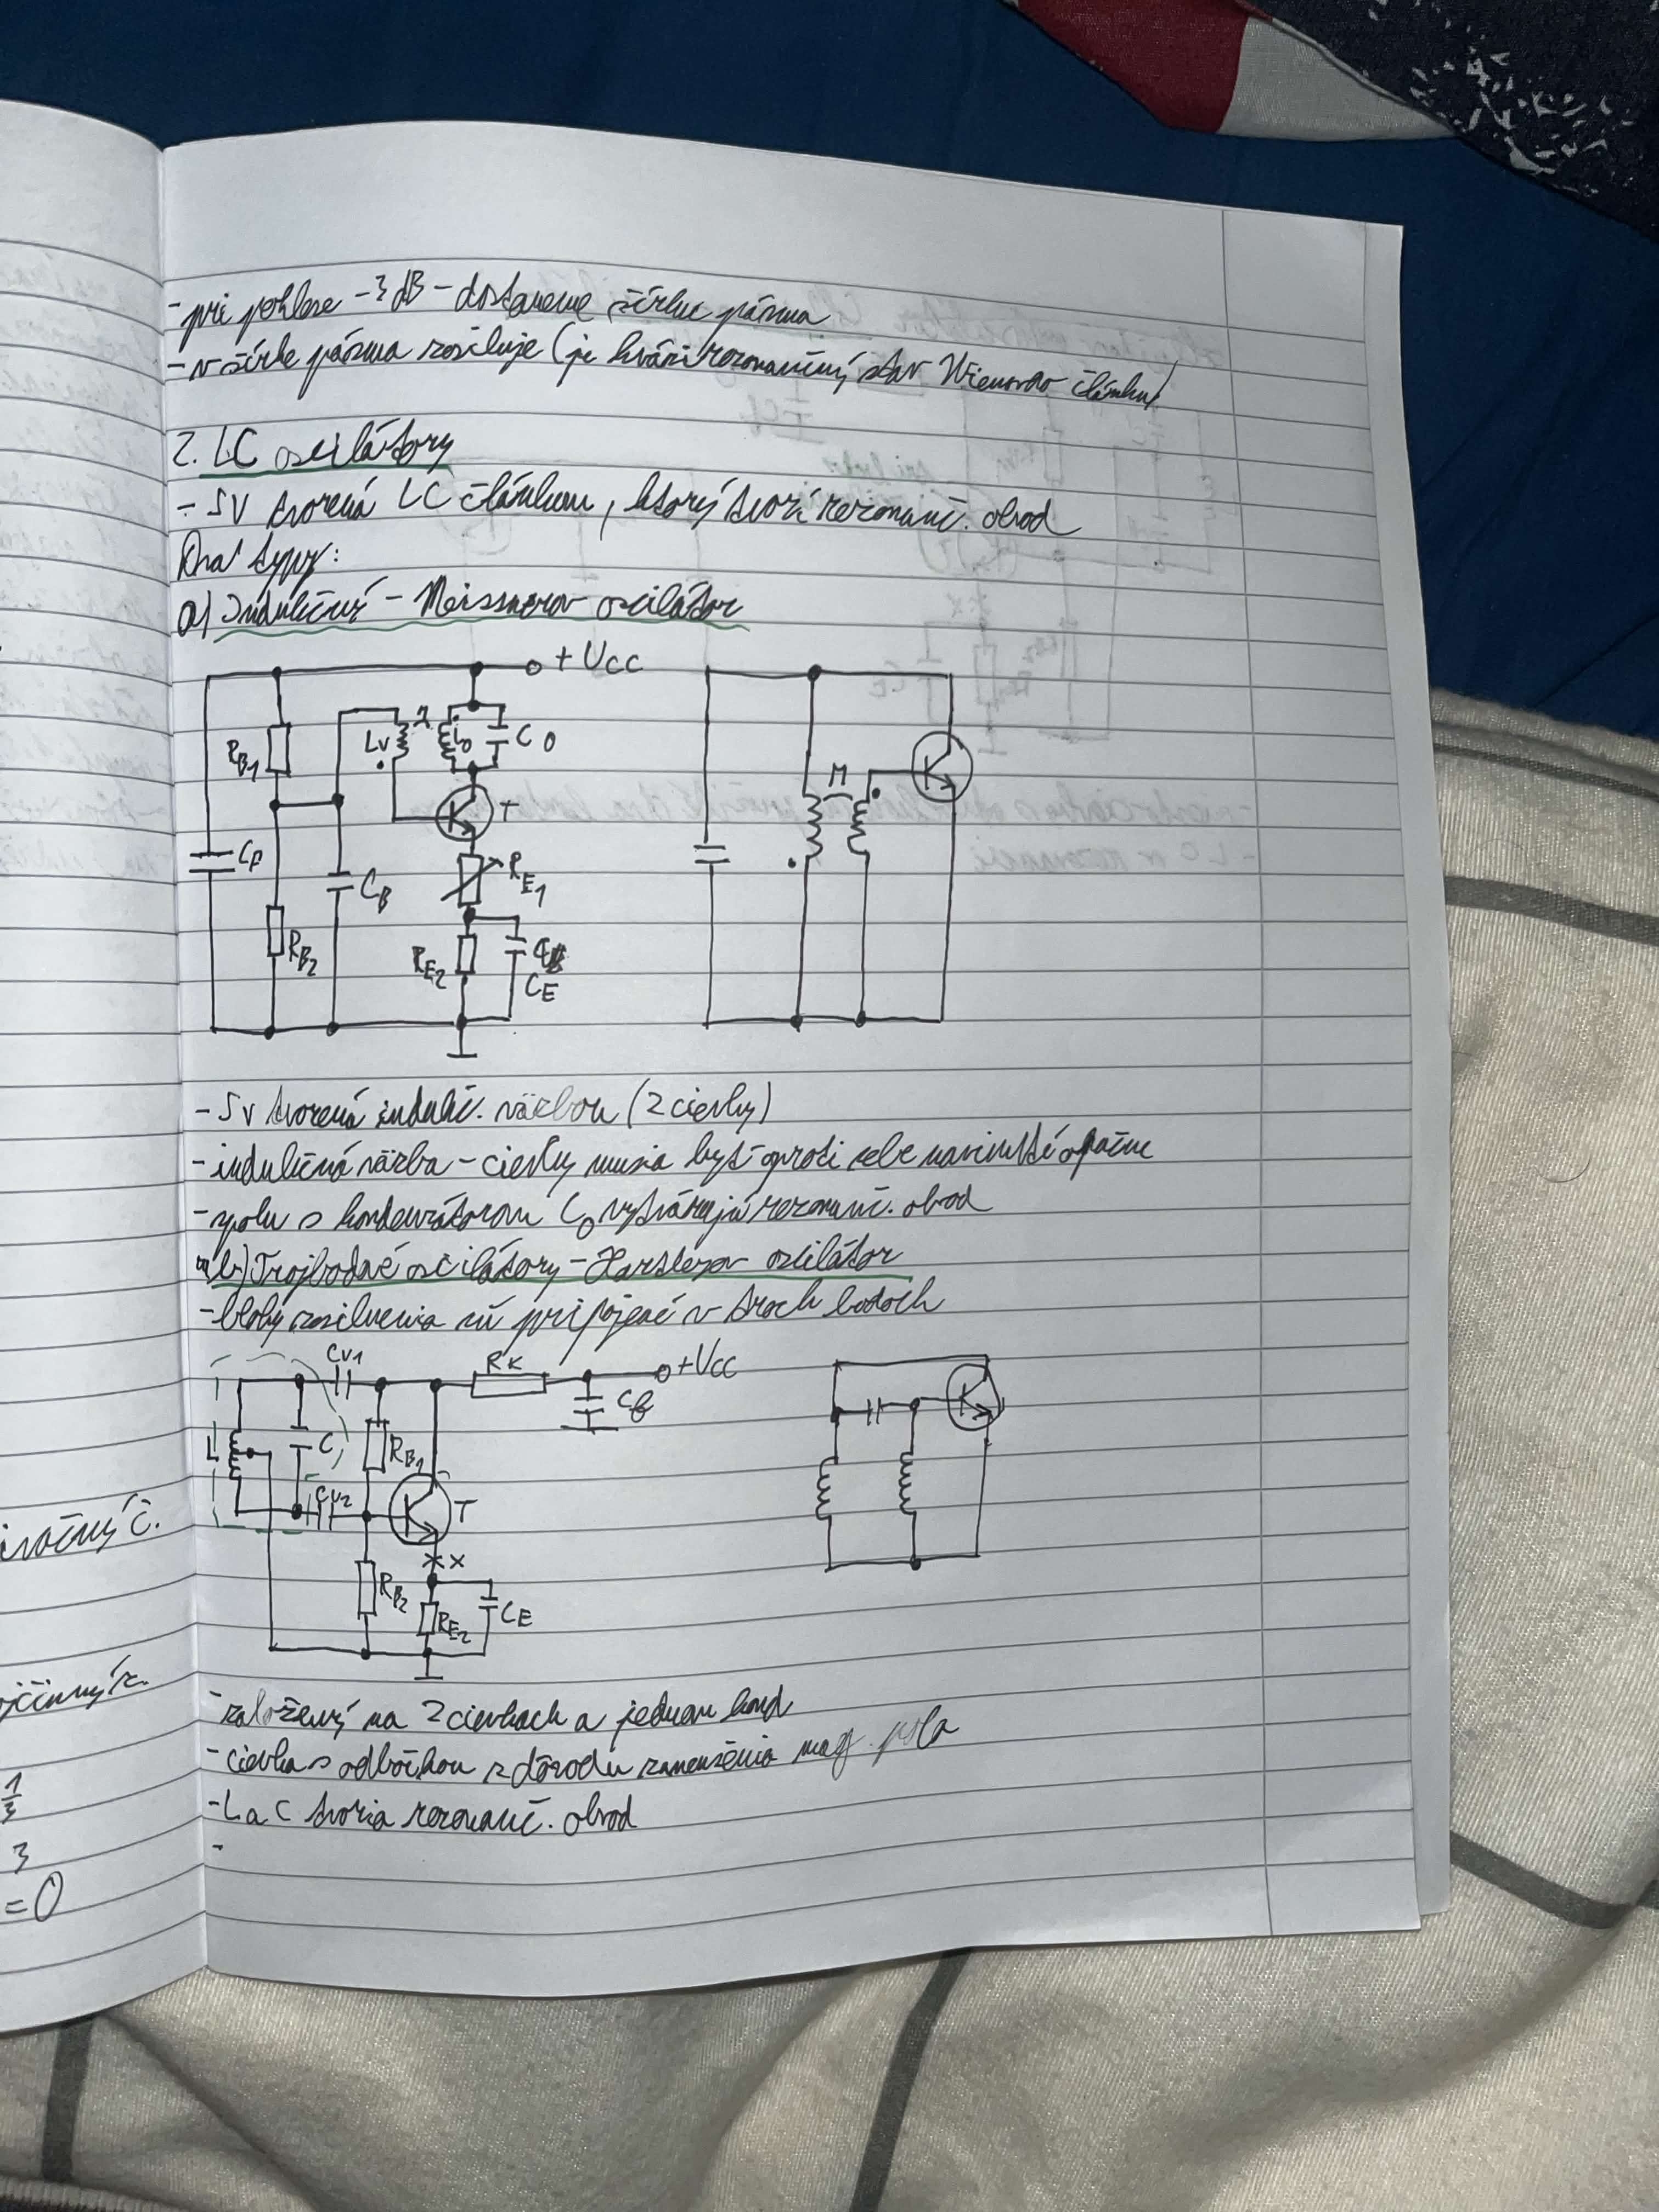 - pri pohlese -3 dB - dostaneme šírku pásma
- v šírke pásma zosiluje (je kvázirezonančný stav Wienovho článku)
2. LC oscilátory
- SV tvorená LC článkom, ktorý tvorí rezonanč. obvod
Dva typy:
a) Indukčný - Meissnerov oscilátor
+Ucc
RB1
Lv
Lo
C0
M
T
CP
CB
RE1
RB2
RE2
CE
- SV tvorená indukč. väzbou (2 cievky)
- indukčná väzba - cievky musia byť oproti sebe navinuté opačne
- spolu s kondenzátorom C0 vytvárajú rezonanč. obvod
b) Trojbodové oscilátory - Hartleyov oscilátor
- bloky zosilnenia sú pripojené v troch bodoch
CV1
RK
+Vcc
CB
L
C
RB1
CV2
T
**x
RB2
RE2
CE
- založený na 2 cievkach a jednom kond
- cievka s odbočkou z dôvodu zamenšenia mag. poľa
- L a C tvoria rezonanč. obvod
-
č.
1/3
3
=0